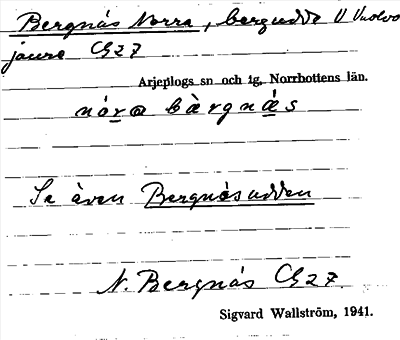 Bergnäs Norra, bergudde V Vuolvo
jaure Cg27
Arjeplogs sn och tg, Norrbottens län.
nór@ bàrgnás
Se även Bergnäsudden
N. Bergnäs Cg27
Sigvard Wallström, 1941.